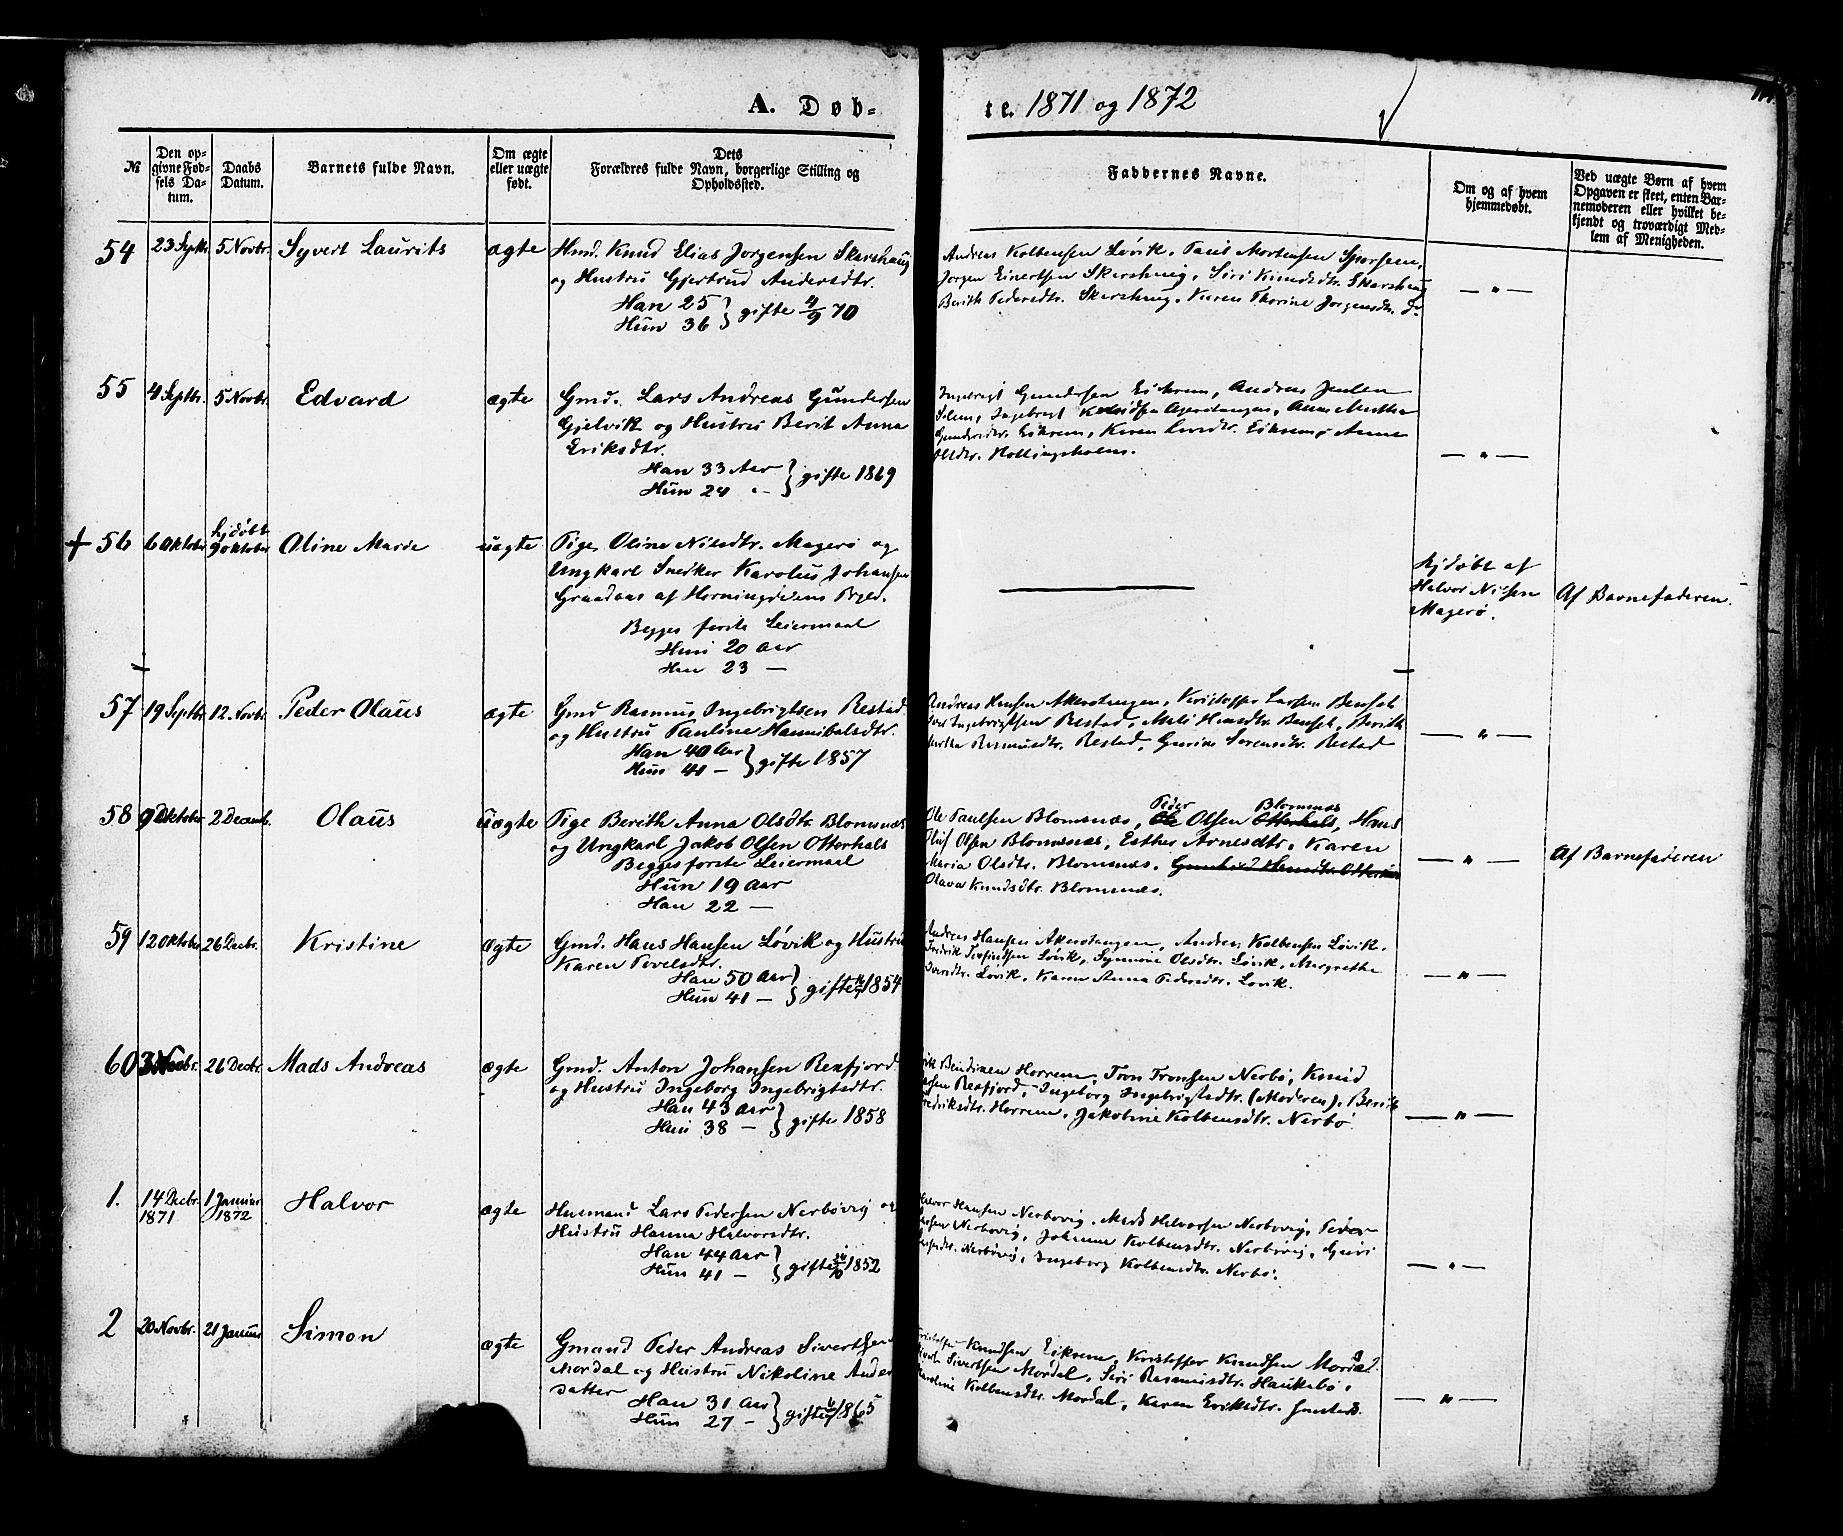 A. Døb-
te. 1871 og 1872
№
Den op-
givne Fød-
sels Da-
tum.
Daabs
Datum.
Barnets fulde Navn.
Om ægte
eller uægte
født.
Dets
Forældres fulde Navn, borgerlige Stilling og
Opholdssted.
Faddernes Navne.
Om og af hvem
hjemmedøbt.
Ved uægte Børn af hvem
Opgaven er skeet, enten Bar-
nemoderen eller hvilket be-
kjendt og troværdigt Med-
lem af Menigheden.
54 23 Septbr. 5 Novbr. Syvert Laurits ægte
Hmd. Knud Elias Jørgensen Skarshaug
og Hustru Gjertrud Andersdtr.
Han 25 } gifte 4/9 70
Hun 36
Andreas Kolbensen Løvik, Paul Mortensen
Jørgen Einertsen Skarshaug, Siri Knudsdtr. Skarshaug
Berith Pedersdtr. Skarshaug, Karen Thorine Jørgensdtr. do
— " —
55 4 Septbr. 5 Novbr. Edvard ægte
Gmd. Lars Andreas Gundersen
Gjelvik og Hustru Berit Anna
Eriksdtr.
Han 33 Aar } gifte 1869
Hun 24 -
Ingebrigt Gundersen Eikrem, Andreas Jensen
Ingebrigt Akerotangen, Anne Martha
Gundersdtr. Eikrem, Karen Eikrem, Anne
Olsdtr. Hollingsholm.
— " —
+ 56 6 Oktober hjdøbt
9 Oktober Oline Marie uægte
Pige Oline Nilsdtr. Magerø og
Ungkarl Snedker Karolus Johansen
Graadaas af Horningdalens Prgld.
Begges første Leiermaal
Hun 20 Aar
Han 23 —
hjdøbt af
Halvor Nilsen
Magerø.
Af Barnefaderen.
57 19 Septbr. 12 Novbr. Peder Olaus ægte
Gmd Rasmus Ingebrigtsen Restad
og Hustru Pauline Hannibalsdtr.
Han 40 Aar } gifte 1857
Hun 41 —
Andreas Hansen Akerotangen, Kristoffer Larsen Bensæt
Ingebrigtsen Restad, Mali Hansdtr. Bensæt, Berith
Martha Rasmusdtr. Restad, Gurine Sørensdtr. Restad
— " —
58 9 Oktober 2 Decemb. Olaus uægte
Pige Berith Anna Olsdtr. Blomsnæs
og Ungkarl Jakob Olsen Otterhals
Begges første Leiermaal
Hun 19 Aar
Han 22 —
Peder Blomsnæs
Ole Paulsen Blomsnæs, Ole Olsen Otterhals, Hans
Oluf Olsen Blomsnæs, Esther Arnesdtr. Karen
Maria Olsdtr. Blomsnæs.
Olava Knudsdtr. Blomsnæs.
— " —
Af Barnefaderen
59 12 Oktober 26 Decbr. Kristine ægte
Gmd. Hans Hansen Løvik og Hustru
Karen Povelsdtr.
Han 50 Aar } gifte 1854
Hun 41 —
Andreas Hansen Akerotangen, Andreas Kolbensen Løvik.
Fredrik Løvik, Synnøve Olsdtr. Løvik, Margrethe
Løvik, Karen Anna Pedersdtr. Løvik.
— " —
60 3 Novbr. 26 Decbr. Mads Andreas ægte
Gmd. Anton Johansen Rexfjord
og Hustru Ingeborg Ingebrigtsdtr.
Han 43 Aar } gifte 1858
Hun 38 —
Bendixen Horrem, Tron Tronsen Nerbø, Knud
Rexfjord, Ingeborg Ingebrigtsdtr. (Moderen), Berit
Fredriksdtr. Horrem, Jakobine Kolbensdtr. Nerbø.
— " —
1. 14 Decbr. 1 Januar Halvor ægte
1871 1872
Husmand Lars Pedersen Nerbøvig og
Hustru Hanna Halvorsdtr.
Han 44 Aar } gifte 1852
Hun 41 —
Halvor Hansen Nerbøvig, Mads Halvorsen Nerbøvig, Peder
Nerbøvig, Johanne Kolbensdtr. Nerbøvig, Guri
Nerbøvig, Ingeborg Kolbensdtr. Nerbø.
— " —
2 20 Novbr. 21 Januar Simon ægte
Gmand Peder Andreas Sivertsen
Mordal og Hustru Nikoline Anders
datter
Han 31 Aar } gifte 1865
Hun 27 —
Kristoffer Knudsen Eikrem, Kristoffer Knudsen Mordal.
Sivertsen Mordal, Siri Rasmusdtr. Haukebø,
Kolbensdtr. Mordal, Karen Eriksdtr.
— " —